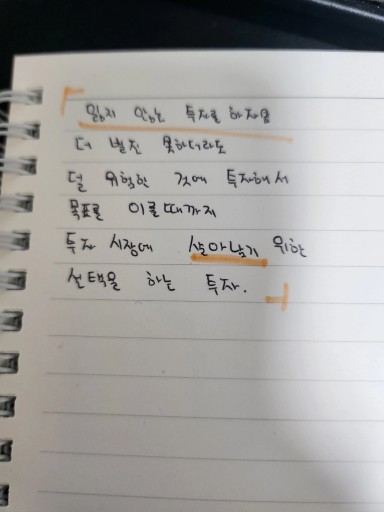 잃지 않는 투자를 하자用
더 벌진 못하더라도
덜 위험한 것에 투자해서
목표를 이룰때까지
투자 시장에 살아남기 위한
선택을 하는 투자.